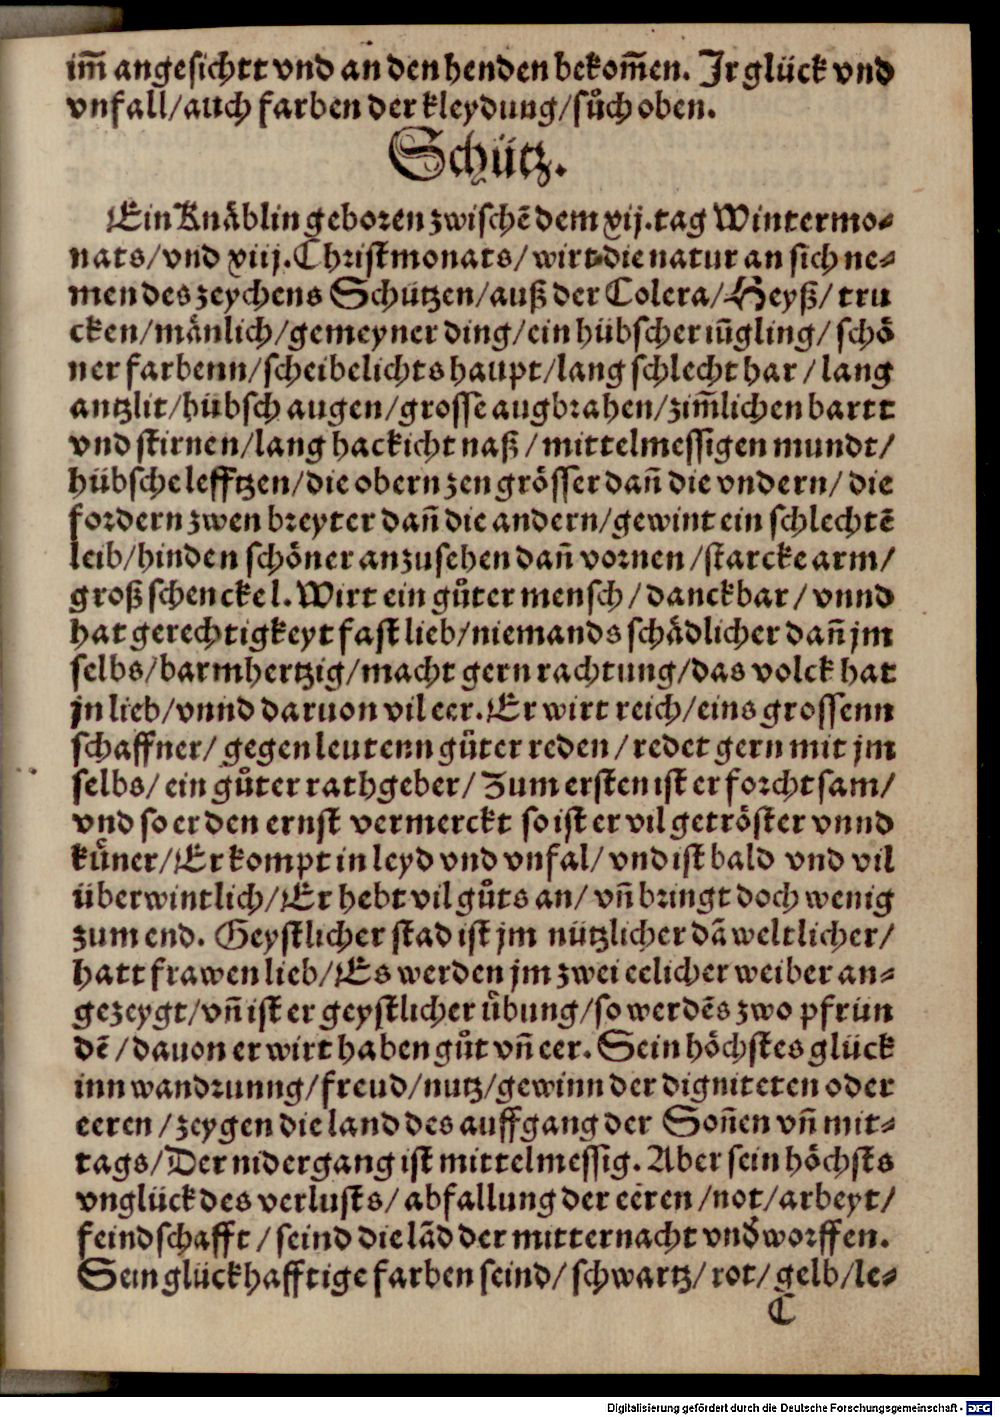 im̃ angesichtt vnd an den henden bekom̃en. Jr glück vnd
vnfall/auch farben der kleydung/sůch oben.
Schütz.
Ein Knäblin geboren zwischẽ dem xij. tag Wintermo⸗
nats/vnd xiij. Christmonats/wirt die natur an sich ne⸗
men des zeychens Schützen/auß der Colera/Heyß/tru
cken/mänlich/gemeyner ding/ein hübscher iũgling/schö
ner farbenn/scheibelichts haupt/lang schlecht har/lang
antzlit/hübsch augen/grosse augbrahen/zim̃lichen bartt
vnd stirnen/lang hackicht naß/mittelmessigen mundt/
hübsche lefftzen/die obern zen grösser dañ die vndern/die
fordern zwen breyter dañ die andern/gewint ein schlechtẽ
leib/hinden schöner anzusehen dañ vornen/starcke arm/
groß schenckel. Wirt ein gůter mensch/danckbar/vnnd
hat gerechtigkeyt fast lieb/niemands schädlicher dañ jm
selbs/barmhertzig/macht gern rachtung/das volck hat
jn lieb/vnnd daruon vil eer. Er wirt reich/eins grossenn
schaffner/gegen leutenn gůter reden/redet gern mit jm
selbs/ein gůter rathgeber/Zum ersten ist er forchtsam/
vnd so er den ernst vermerckt so ist er vil getröster vnnd
küner/Er kompt in leyd vnd vnfal/vnd ist bald vnd vil
überwintlich/Er hebt vil gůts an/vñ bringt doch wenig
zum end. Geystlicher stad ist jm nützlicher dã weltlicher/
hatt frawen lieb/Es werden jm zwei eelicher weiber an⸗
gezeygt/vñ ist er geystlicher übung/so werdẽs zwo pfrün
dẽ/dauon er wirt haben gůt vñ eer. Sein höchstes glück
inn wandrunng/freud/nutz/gewinn der digniteten oder
eeren/zeygen die land des auffgang der Soñen vñ mit⸗
tags/Der nidergang ist mittelmessig. Aber sein höchsts
vnglück des verlusts/abfallung der eeren/not/arbeyt/
feindschafft/seind die lãd der mitternacht vnd worffen.
Sein glückhafftige farben seind/schwartz/rot/gelb/le⸗
C
Digitalisierung gefördert durch die Deutsche Forschungsgemeinschaft - DFG